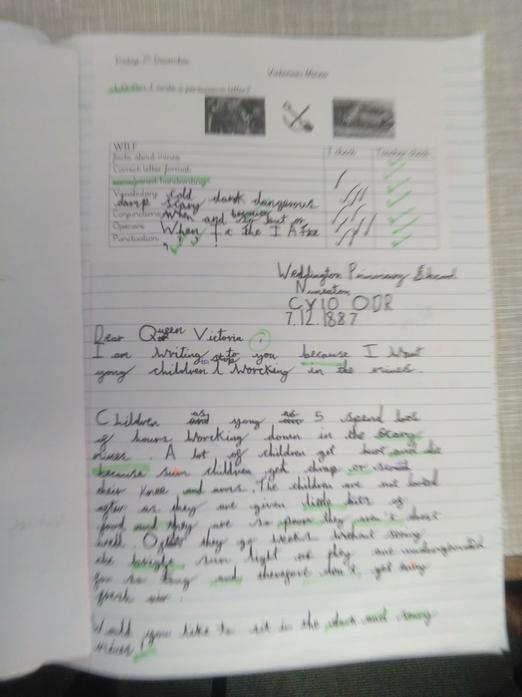 Friday 7th December
Victorian Mines
I write a persuasive letter?
WILF
I check
Teacher check
facts about mines
Correct letter format
handwriting
Vocabulary cold dark dangerous
damp scary
Conjunctions When and so but or
because
Openers When I A the I A
Punctuation , ? !
Weddington Primary
Nuneaton
CV10 0DR
7.12.1887
Dear Queen Victoria,
I am writing to you because I want
to stop
yong children worcking in the mines
Children as yong as 5 spend lots
of hours worcking down in the scary
mines. A lot of children get hurt and die
because sum children get
their knee and arms. The children are not looked
after as they are given little bits of
food and they are so they don't
well. they go weeks without seeing
the bright sun light as they are underground
for so long and therefore don't get any
fresh air.
Would you like to sit in the dark and scary
mines!